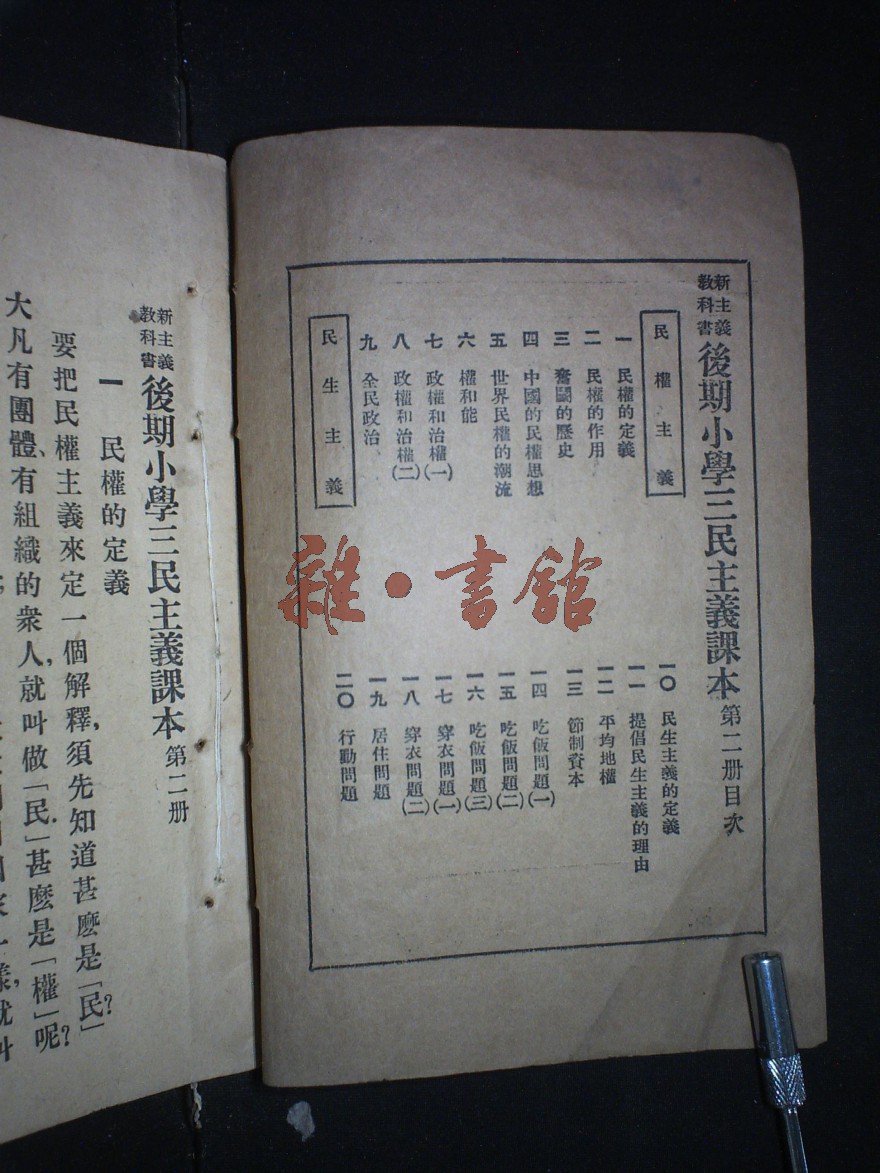 新主義教科書 後期小學三民主義課本 第二册目次
民權主義
一 民權的定義
二 民權的作用
三 奮鬭的歷史
四 中國的民權思想
五 世界民權的潮流
六 權和能
七 政權和治權(一)
八 政權和治權(二)
九 全民政治
民生主義
一〇 民生主義的定義
一一 提倡民生主義的理由
一二 平均地權
一三 節制資本
一四 吃飯問題(一)
一五 吃飯問題(二)
一六 吃飯問題(三)
一七 穿衣問題(一)
一八 穿衣問題(二)
一九 居住問題
二〇 行動問題
雜·書館
新主義教科書 後期小學三民主義課本 第二册
一 民權的定義
要把民權主義來定一個解釋,須先知道甚麽是「民」?
甚麽是「權」呢?
大凡有團體、有組織的衆人,就叫做「民」